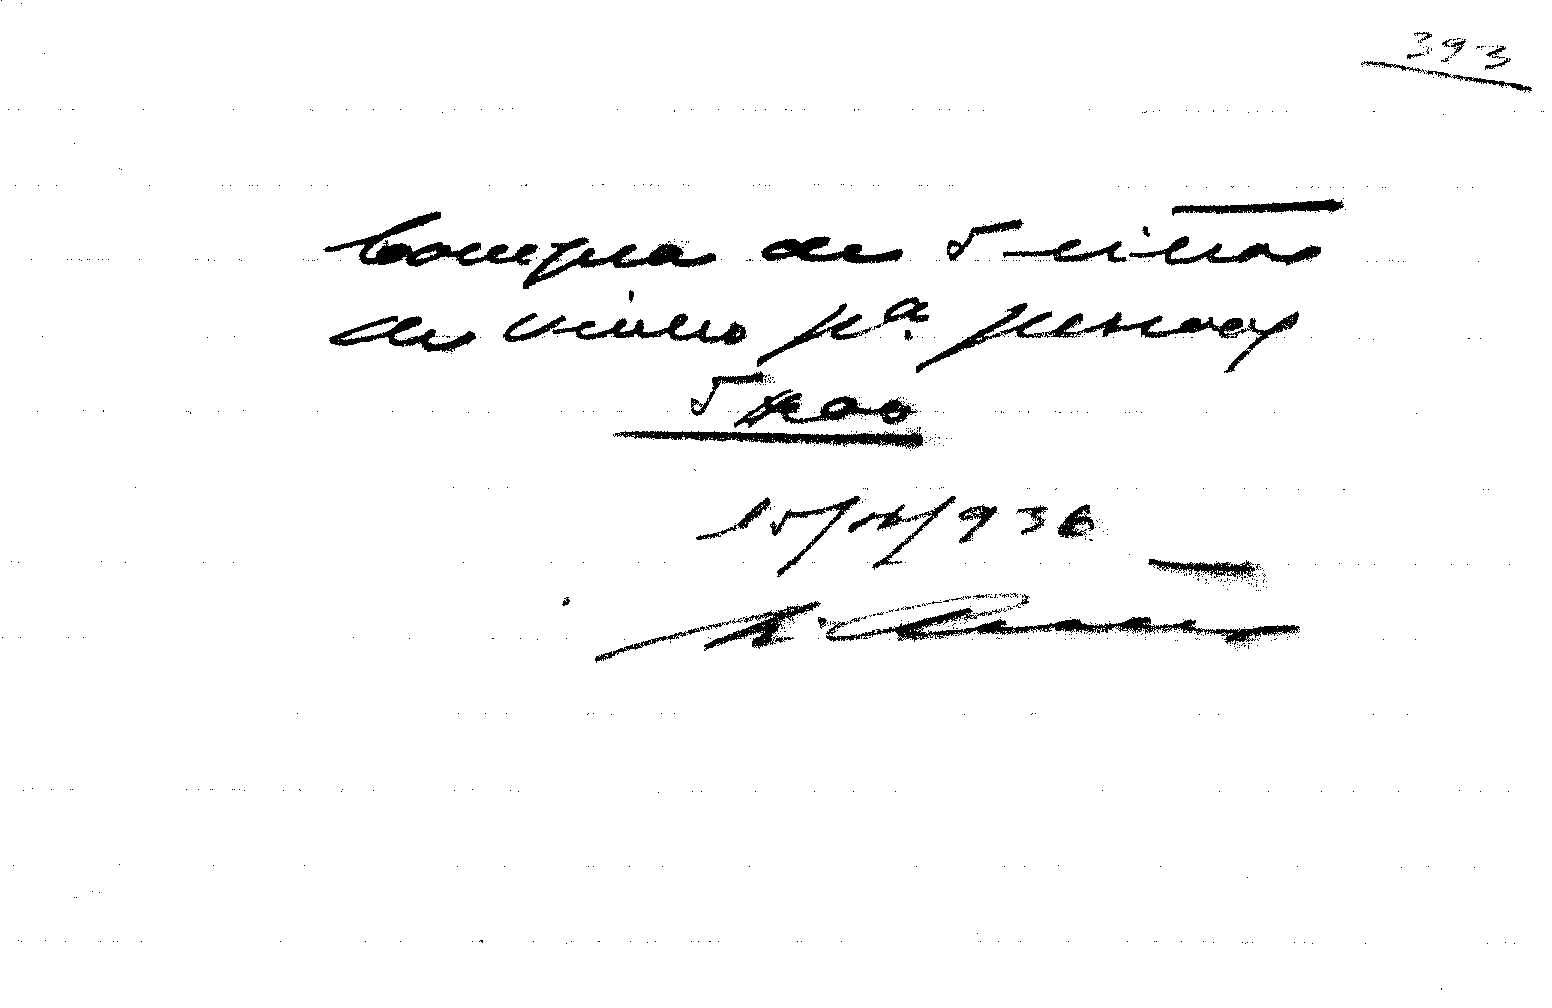 393
Compra de 5 litros
de vinho pª. pessoal
5$00
15/12/936